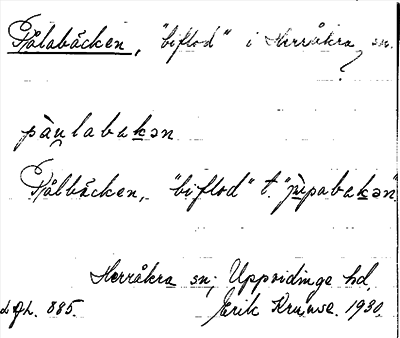 Pålabäcken, "biflod" i Herråkra sn.
pàu̯labakən
Pålbäcken, "biflod" t. "pìpabakən"
Herråkra sn; Uppvidinge hd.
Erik Kruuse. 1930.